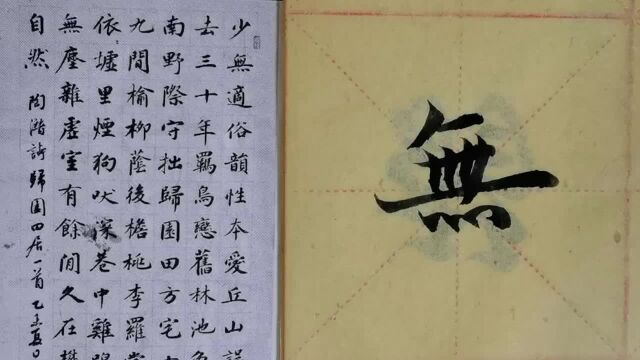 少無適俗韻性本愛丘山誤
去三十年羈鳥戀舊林池魚
南野際守拙歸園田方宅十
九間榆柳蔭後檐桃李羅堂
依墟里煙狗吠深巷中雞鳴
無塵雜虛室有餘閒久在樊
自然 陶潛詩歸園田居一首
無